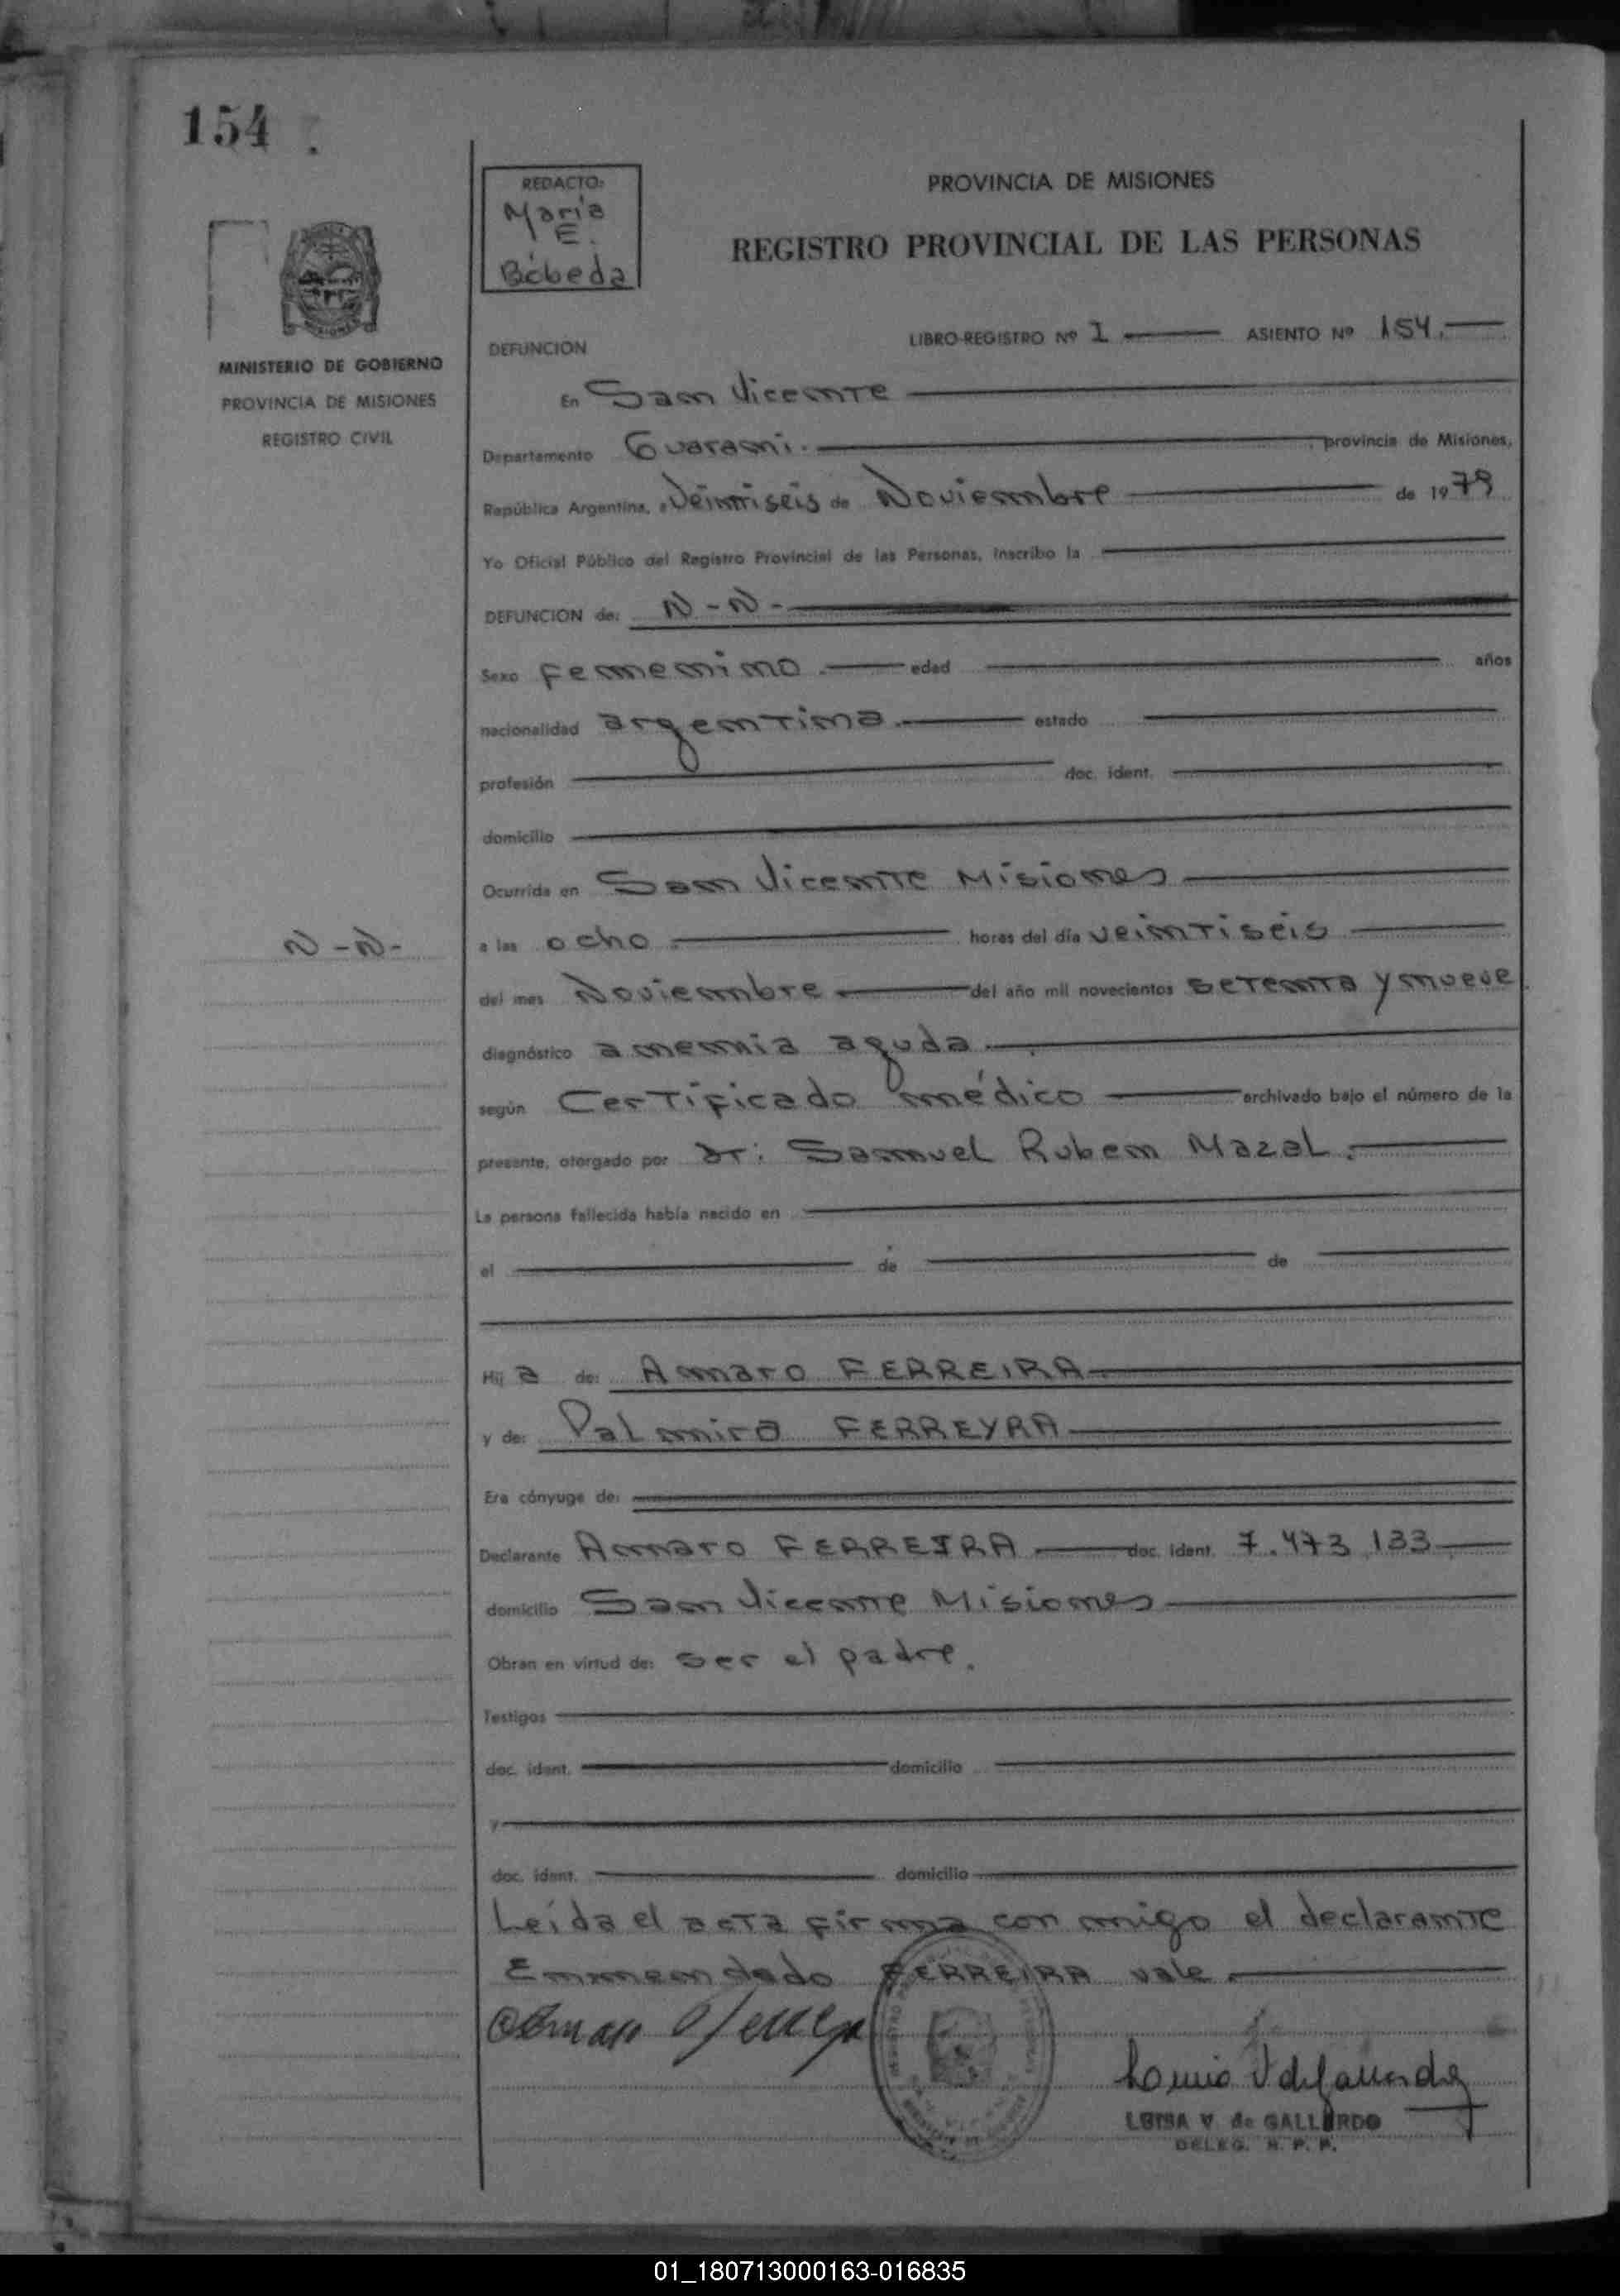 154
REDACTO:
Maria
E.
Bóbeda
PROVINCIA DE MISIONES
REGISTRO PROVINCIAL DE LAS PERSONAS
MINISTERIO DE GOBIERNO
PROVINCIA DE MISIONES
REGISTRO CIVIL
DEFUNCION
LIBRO-REGISTRO Nº 1 ASIENTO Nº 154.
En San Vicente
Departamento Guarani. , provincia de Misiones,
República Argentina, a Veintiseis de Noviembre de 1979
Yo Oficial Público del Registro Provincial de las Personas, inscribo la
DEFUNCION de: N-N-
Sexo Femenino. edad años
nacionalidad argentina. estado
profesión doc. ident.
domicilio
Ocurrida en San Vicente Misiones
N-N-
a las ocho horas del día veintiseis
del mes Noviembre del año mil novecientos setenta y nueve
diagnóstico anemia aguda
según Certificado médico archivado bajo el número de la
presente, otorgado por Dr: Samuel Ruben Mazal.
La persona fallecida había nacido en
el de de
Hij a de: Amaro FERREIRA
y de: Palmira FERREYRA
Era cónyuge de:
Declarante Amaro FERREIRA doc. ident. 7.473.133
domicilio San Vicente Misiones
Obran en virtud de: ser el padre.
Testigos
doc. ident. domicilio
y
doc. ident. domicilio
Leída el acta firma con migo el declarante
Enmendado FERREIRA vale.
LUISA V. de GALLARDO
DELEG. R. P. P.
01_180713000163-016835